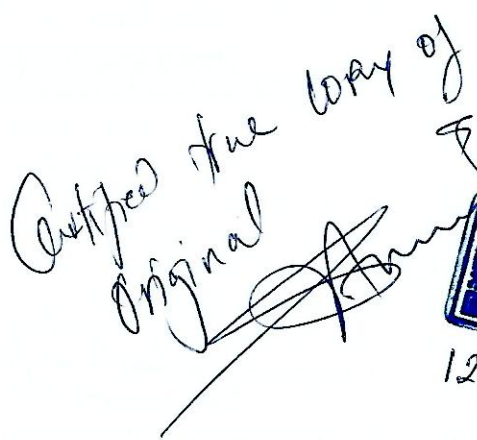 Certified true copy of
original
12